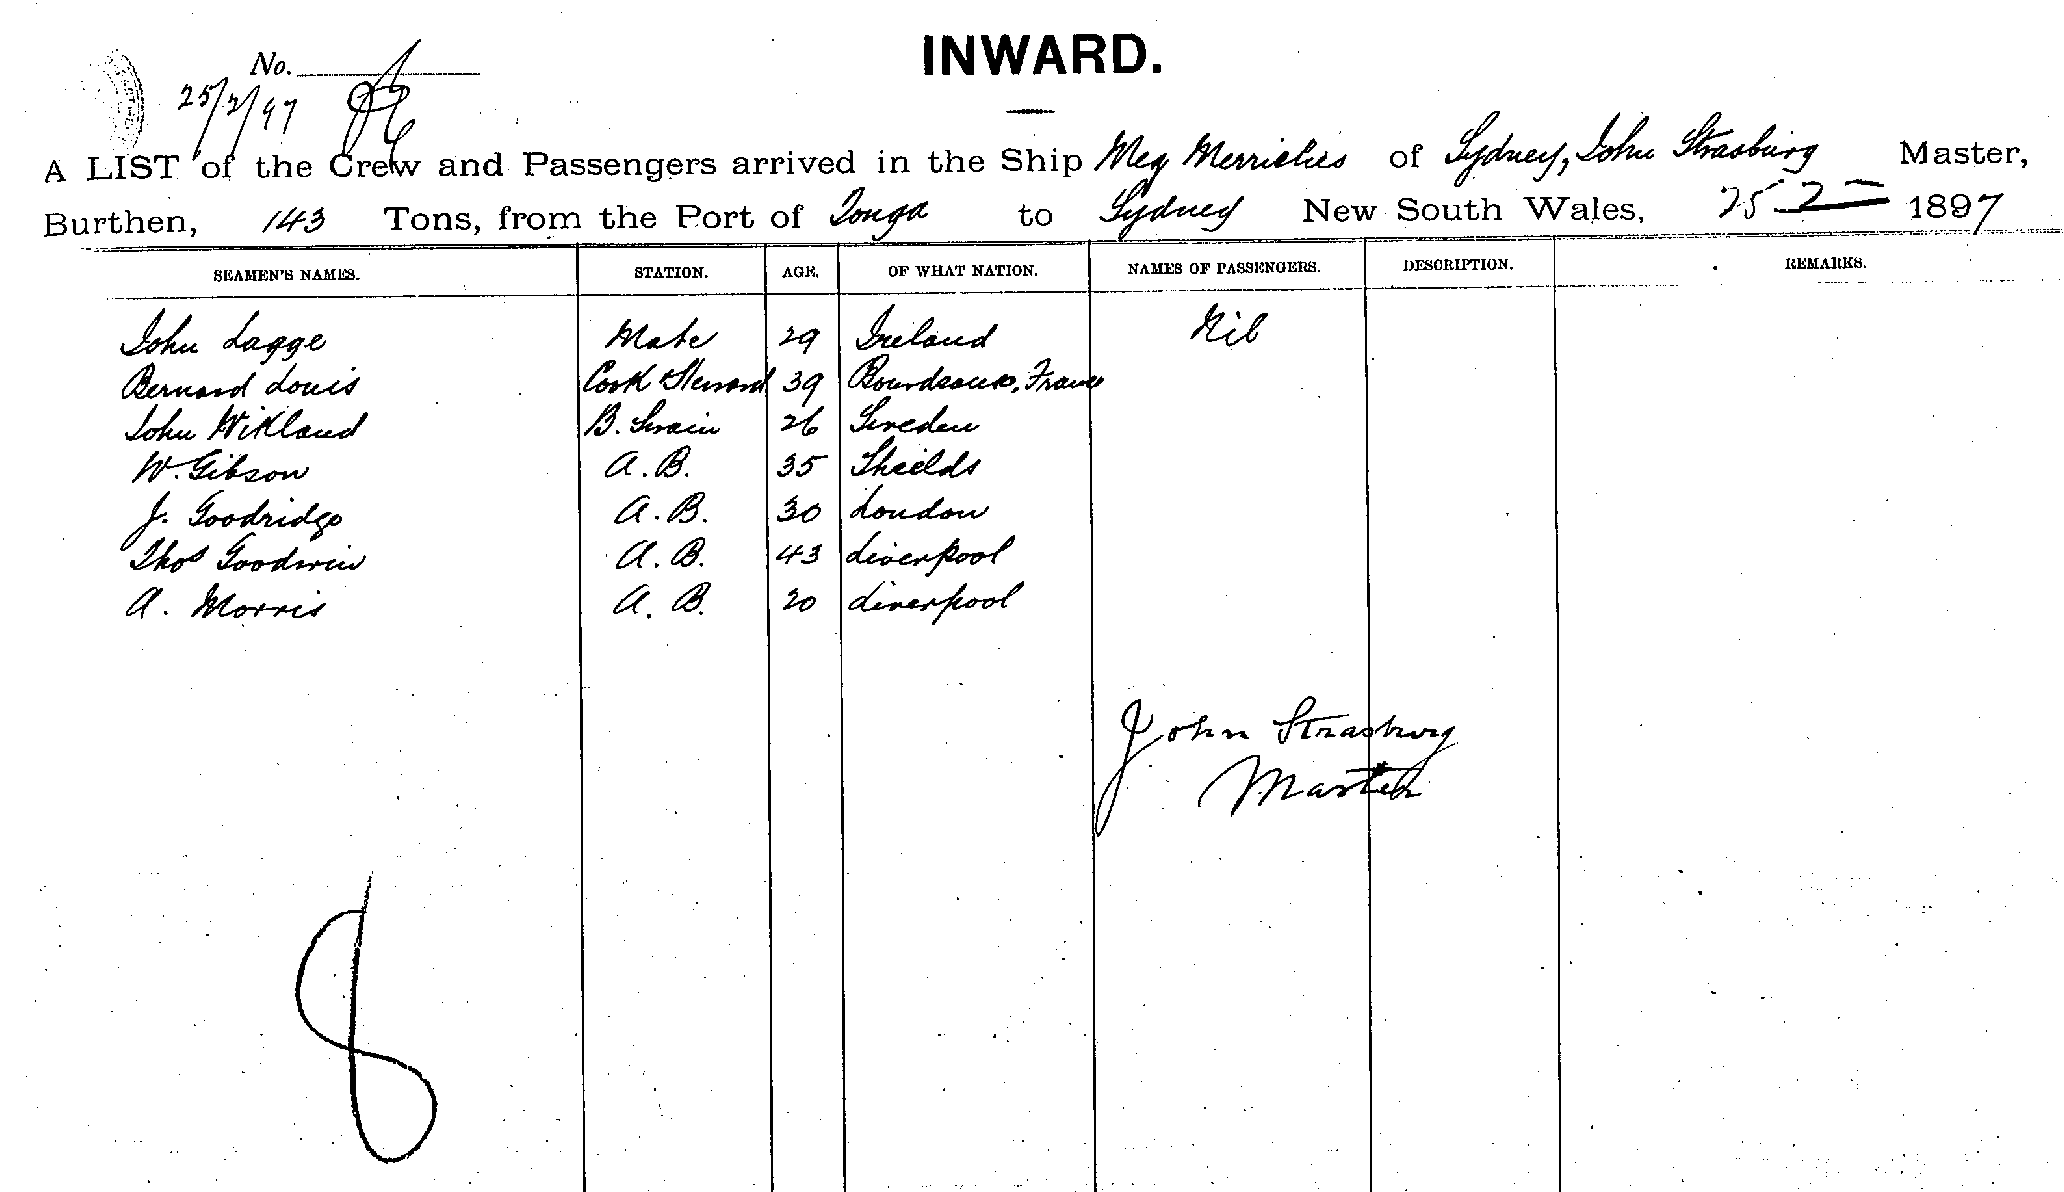 INWARD.
No.
25/2/97
A LIST of the Crew and Passengers arrived in the Ship Meg Merrilies of Sydney, John Strasburg Master,
Burthen, 143 Tons, from the Port of Tonga to Sydney New South Wales, 25 2 1897
SEAMEN'S NAMES. STATION. AGE. OF WHAT NATION. NAMES OF PASSENGERS. DESCRIPTION. REMARKS.
John Lagge Mate 29 Ireland Nil
Bernard Louis Cook Steward 39 Bourdeaux, France
John Wikland B. Swain 26 Sweden
W. Gibson A.B. 35 Shields
J. Goodridge A.B. 30 London
Thos Goodwin A.B. 43 Liverpool
A. Morris A.B. 20 Liverpool
John Strasburg
Master
8